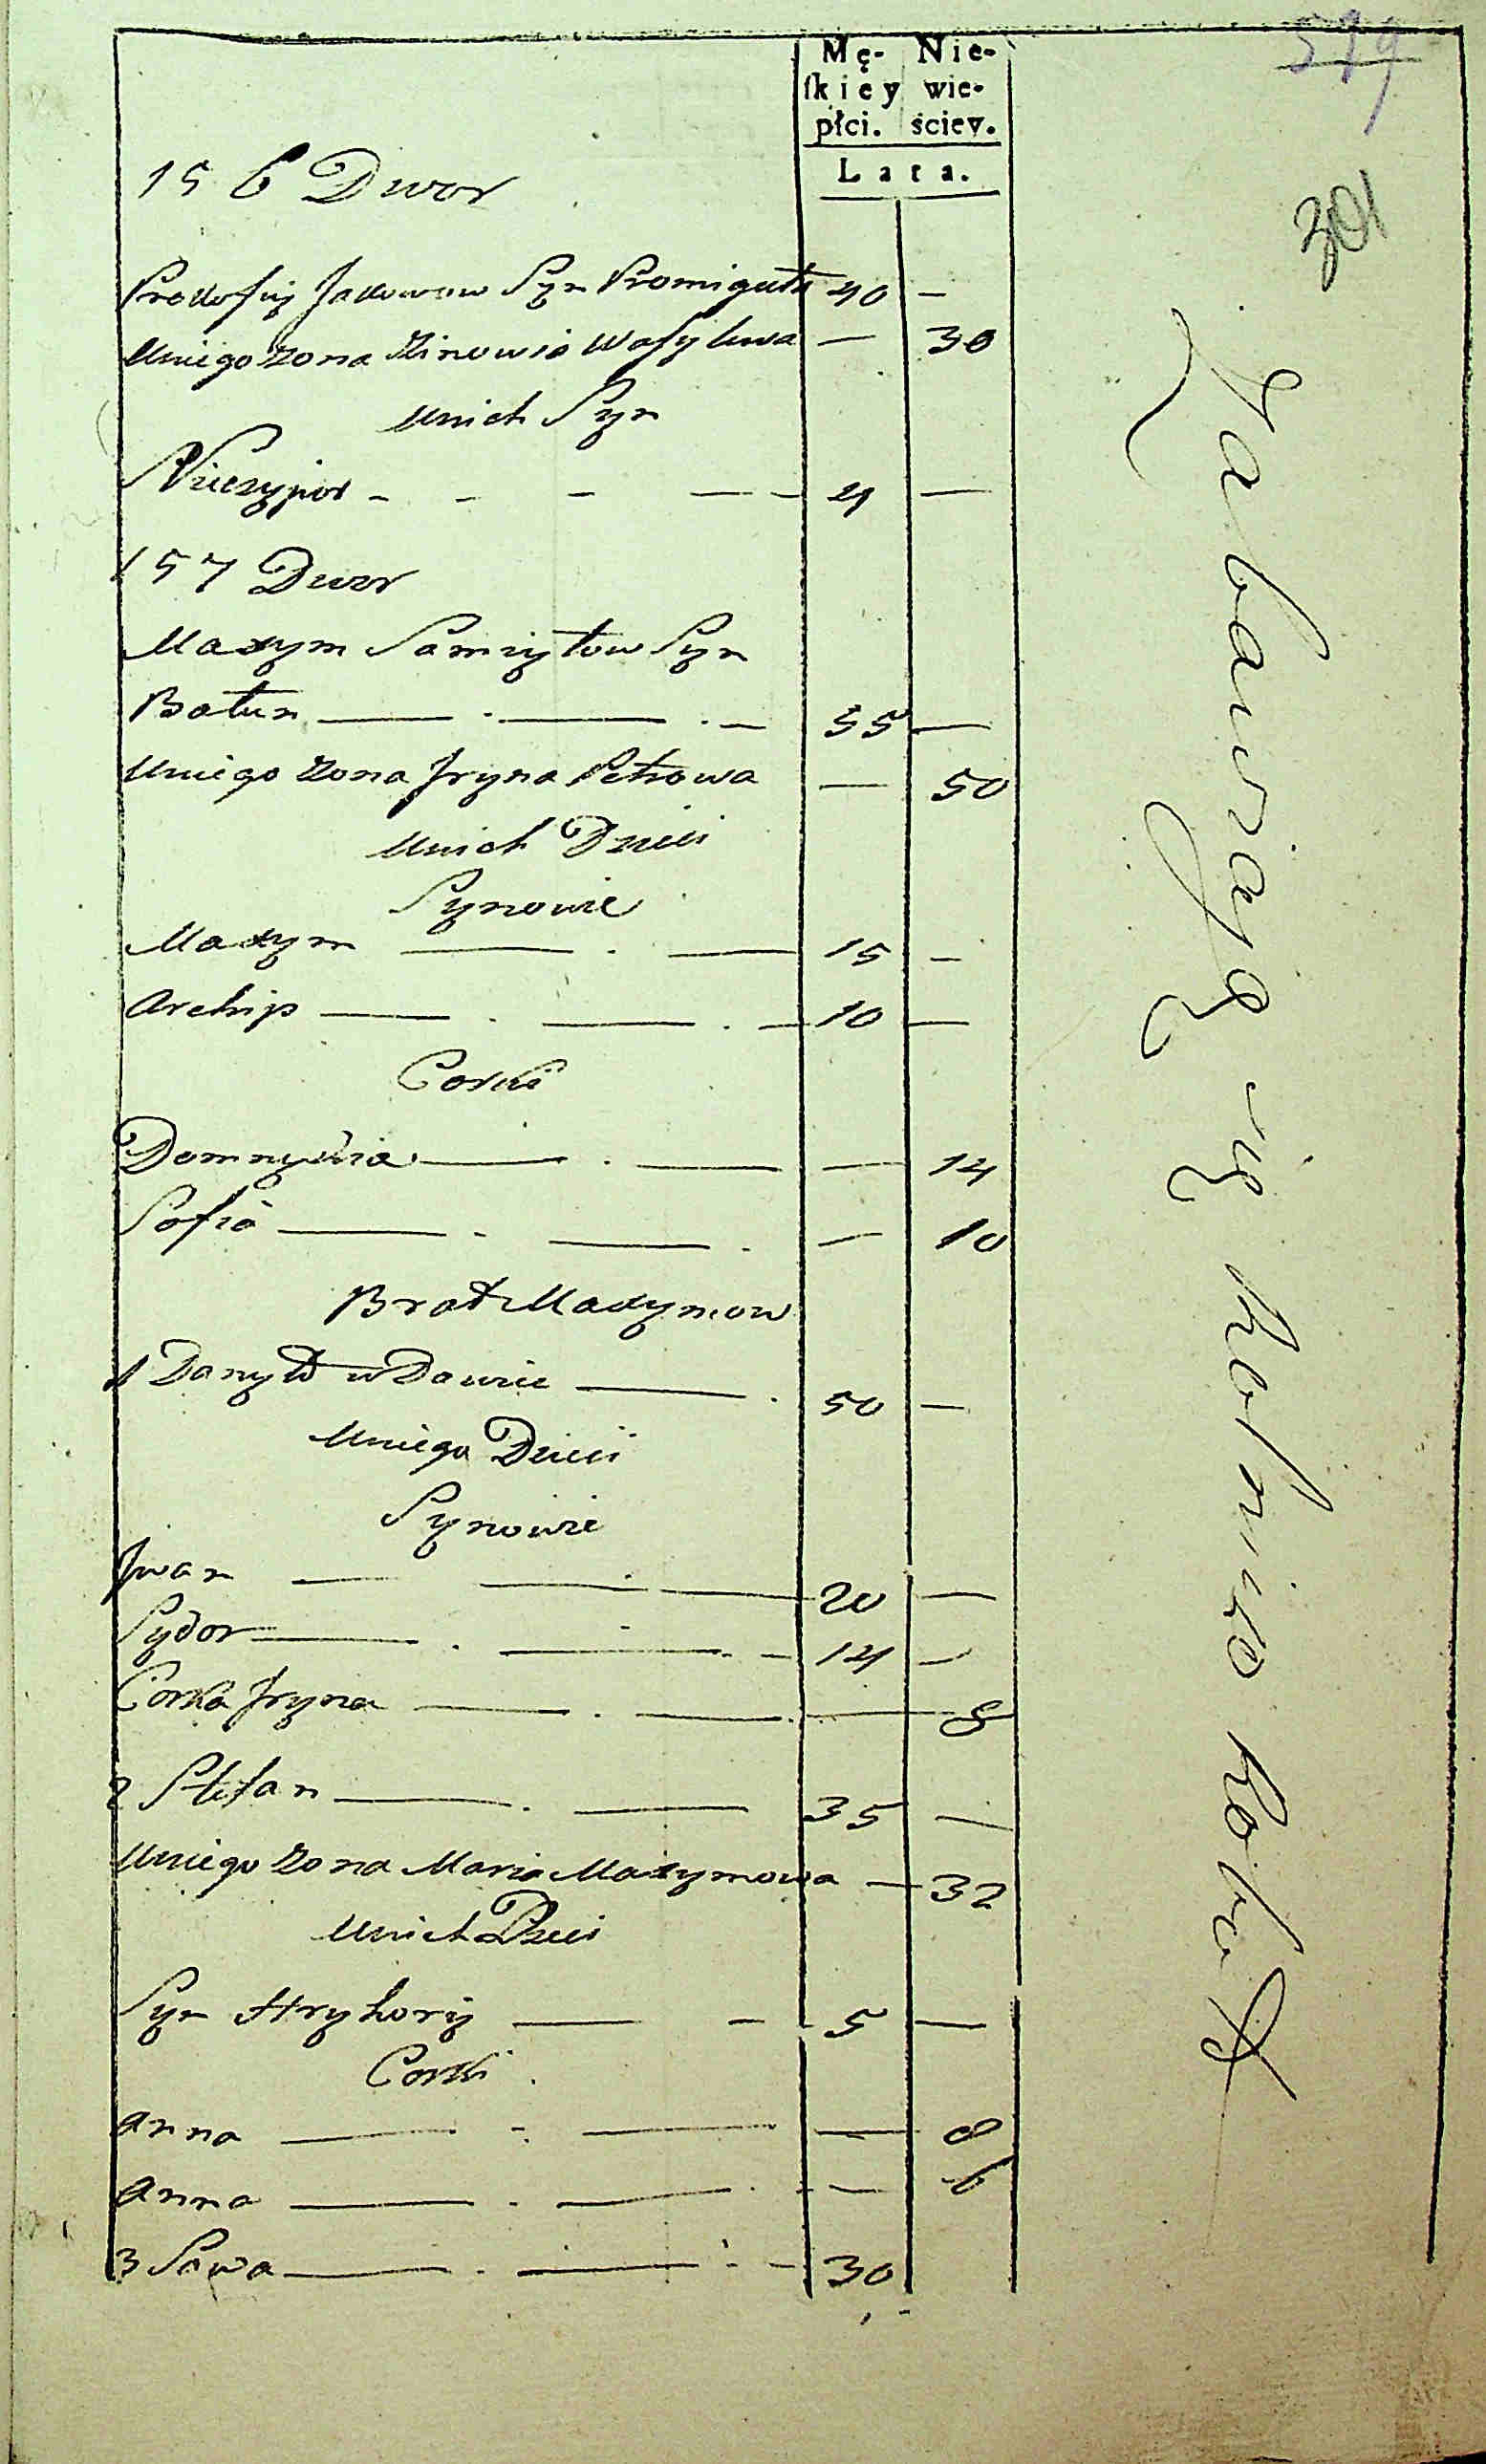 Mę- Nie-
skiey wie-
płci. ściey.
Lata.
579
301
156 Dwor
Prokofiy Jakowow Syn Promiguła 40 —
Uniego Zona Zinowia Wasylowa — 30
Unich Syn
Niczypor - - - — - 4 —
157 Dwor
Maxym Samiyłow Syn
Batun — . — . — 55 —
Uniego Zona Jryna Petrowa — 50
Unich Dzieci
Synowie
Maxym — . — 15 —
Archip — . — . — 10 —
Corki
Domnykia — . — — 14
Sofia — . — . — 10
Brat Maxymow
1 Danyło wDowie — . 50 —
Uniego Dzieci
Synowie
Jwan — — . — 20 —
Sydor — . — . — 14 —
Corka Jryna — . — . — 8
2 Stefan — . — 35 —
Uniego Zona Maria Maxymowa — 32
Unich Dzieci
Syn Hryhoriy — — 5 —
Corki
Anna — . — — 8
Anna — . — . — 6
3 Sawa — . — . — 30
Zabawiają się Rolniczo robotą